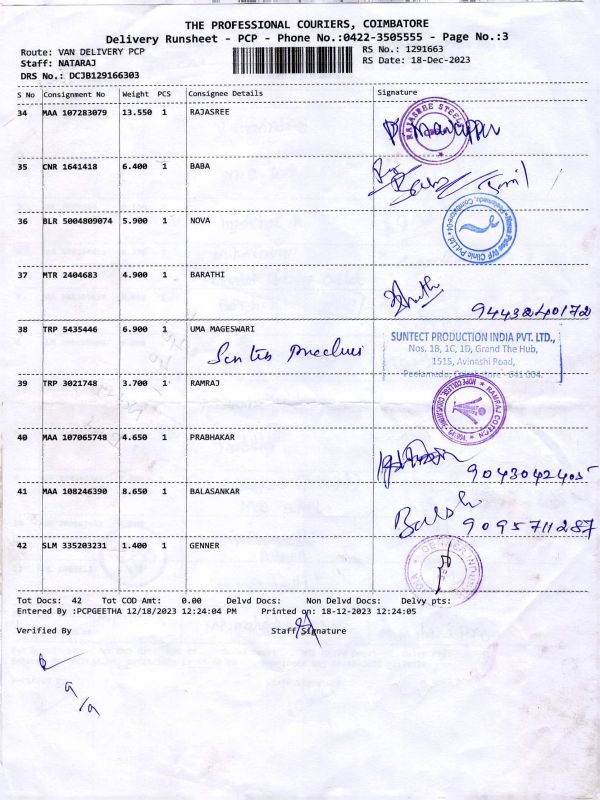 THE PROFESSIONAL COURIERS, COIMBATORE
Delivery Runsheet - PCP - Phone No.:0422-3505555 - Page No.:3
Route: VAN DELIVERY PCP RS No.: 1291663
Staff: NATARAJ RS Date: 18-Dec-2023
DRS No.: DCJB129166303
S No Consignment No Weight PCS Consignee Details Signature
34 MAA 107283079 13.550 1 RAJASREE
RAJASREE STEEL
35 CNR 1641418 6.400 1 BABA
36 BLR 5004809074 5.900 1 NOVA
37 MTR 2404683 4.900 1 BARATHI
9443240172
38 TRP 5435446 6.900 1 UMA MAGESWARI
SUNTECT PRODUCTION INDIA PVT. LTD.,
Nos. 1B, 1C, 1D, Grand The Hub,
1515, Avinashi Road,
Peelamedu, Coimbatore - 641 004.
39 TRP 3021748 3.700 1 RAMRAJ
RAMRAJ COTTON
HOPE COLLEGE
40 MAA 107065748 4.650 1 PRABHAKAR
9043042405
41 MAA 108246390 8.650 1 BALASANKAR
9095711287
42 SLM 335203231 1.400 1 GENNER
Tot Docs: 42 Tot COD Amt: 0.00 Delvd Docs: Non Delvd Docs: Delvy pts:
Entered By :PCPGEETHA 12/18/2023 12:24:04 PM Printed on: 18-12-2023 12:24:05
Verified By Staff Signature